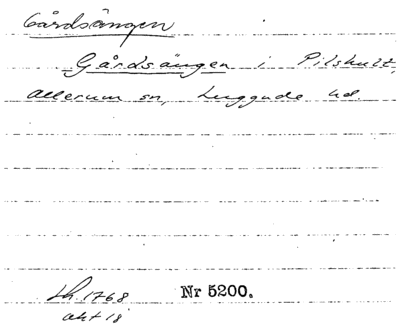 Gårdsängen
Gårdsängen i Pilshult,
Allerum sn, Luggude hd.
Lh. 1768 Nr 5200.
akt 18